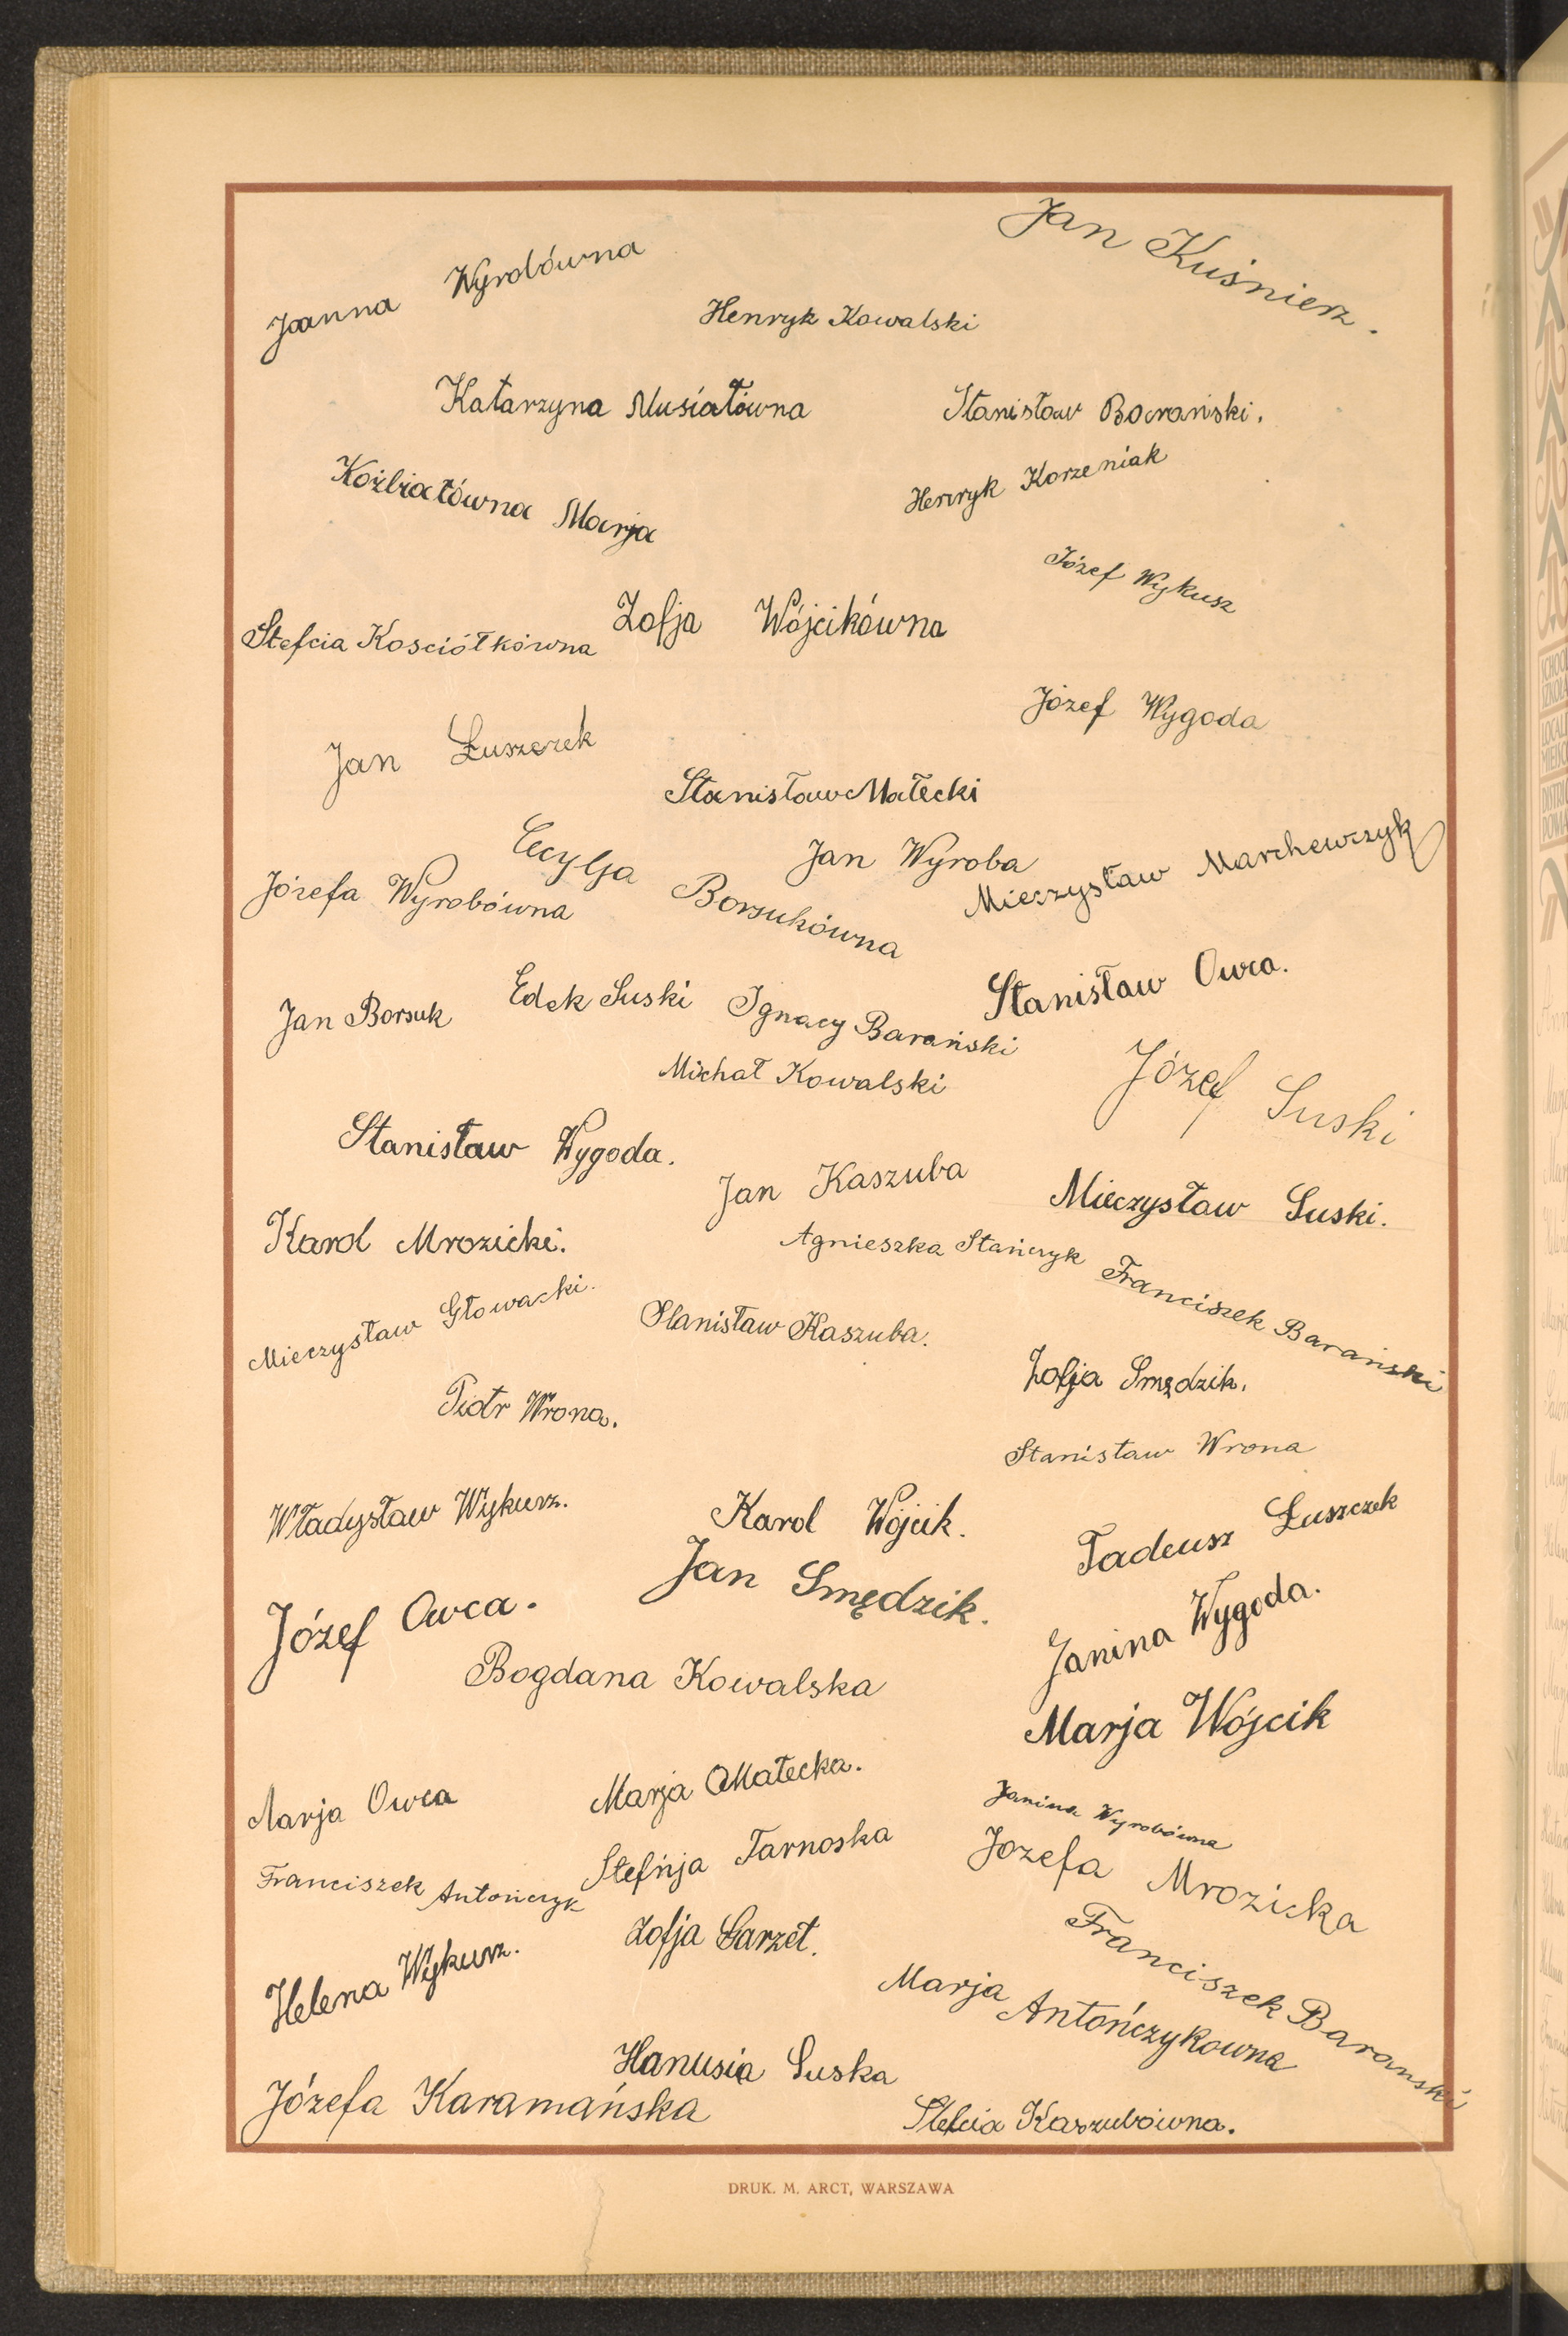 Joanna Wyrobówna
Jan Kuśnierz.
Henryk Kowalski
Katarzyna Musiałówna
Stanisław Barański.
Koźbiałówna Marja
Henryk Korzeniak
Józef Wykusz
Stefcia Kosciółkówna
Zofja Wójcikówna
Józef Wygoda
Jan Łuszczek
Stanisław Małecki
Cecylja Borsukówna
Jan Wyroba
Mieczysław Marchewczyk
Józefa Wyrobówna
Stanisław Owca.
Jan Borsuk
Edek Suski
Ignacy Barański
Michał Kowalski
Józef Suski
Stanisław Wygoda.
Jan Kaszuba
Mieczysław Suski.
Karol Mrozicki.
Agnieszka Stańczyk
Franciszek Barański
Mieczysław Głowacki.
Stanisław Kaszuba.
Zofja Smędzik.
Piotr Wrona.
Stanisław Wrona
Władysław Wykurz.
Karol Wójcik.
Tadeusz Łuszczek
Jan Smędzik.
Józef Owca.
Janina Wygoda.
Bogdana Kowalska
Marja Wójcik
Marja Owca
Marja Małecka.
Janina Wyrobówna
Franciszek Antończyk
Stefnja Tarnoska
Jozefa Mrozicka
Zofja Garzet.
Franciszek Baranski
Helena Wykurz.
Marja Antończykowna
Hanusia Suska
Józefa Karamańska
Stefcia Kaszubówna.
DRUK. M. ARCT, WARSZAWA